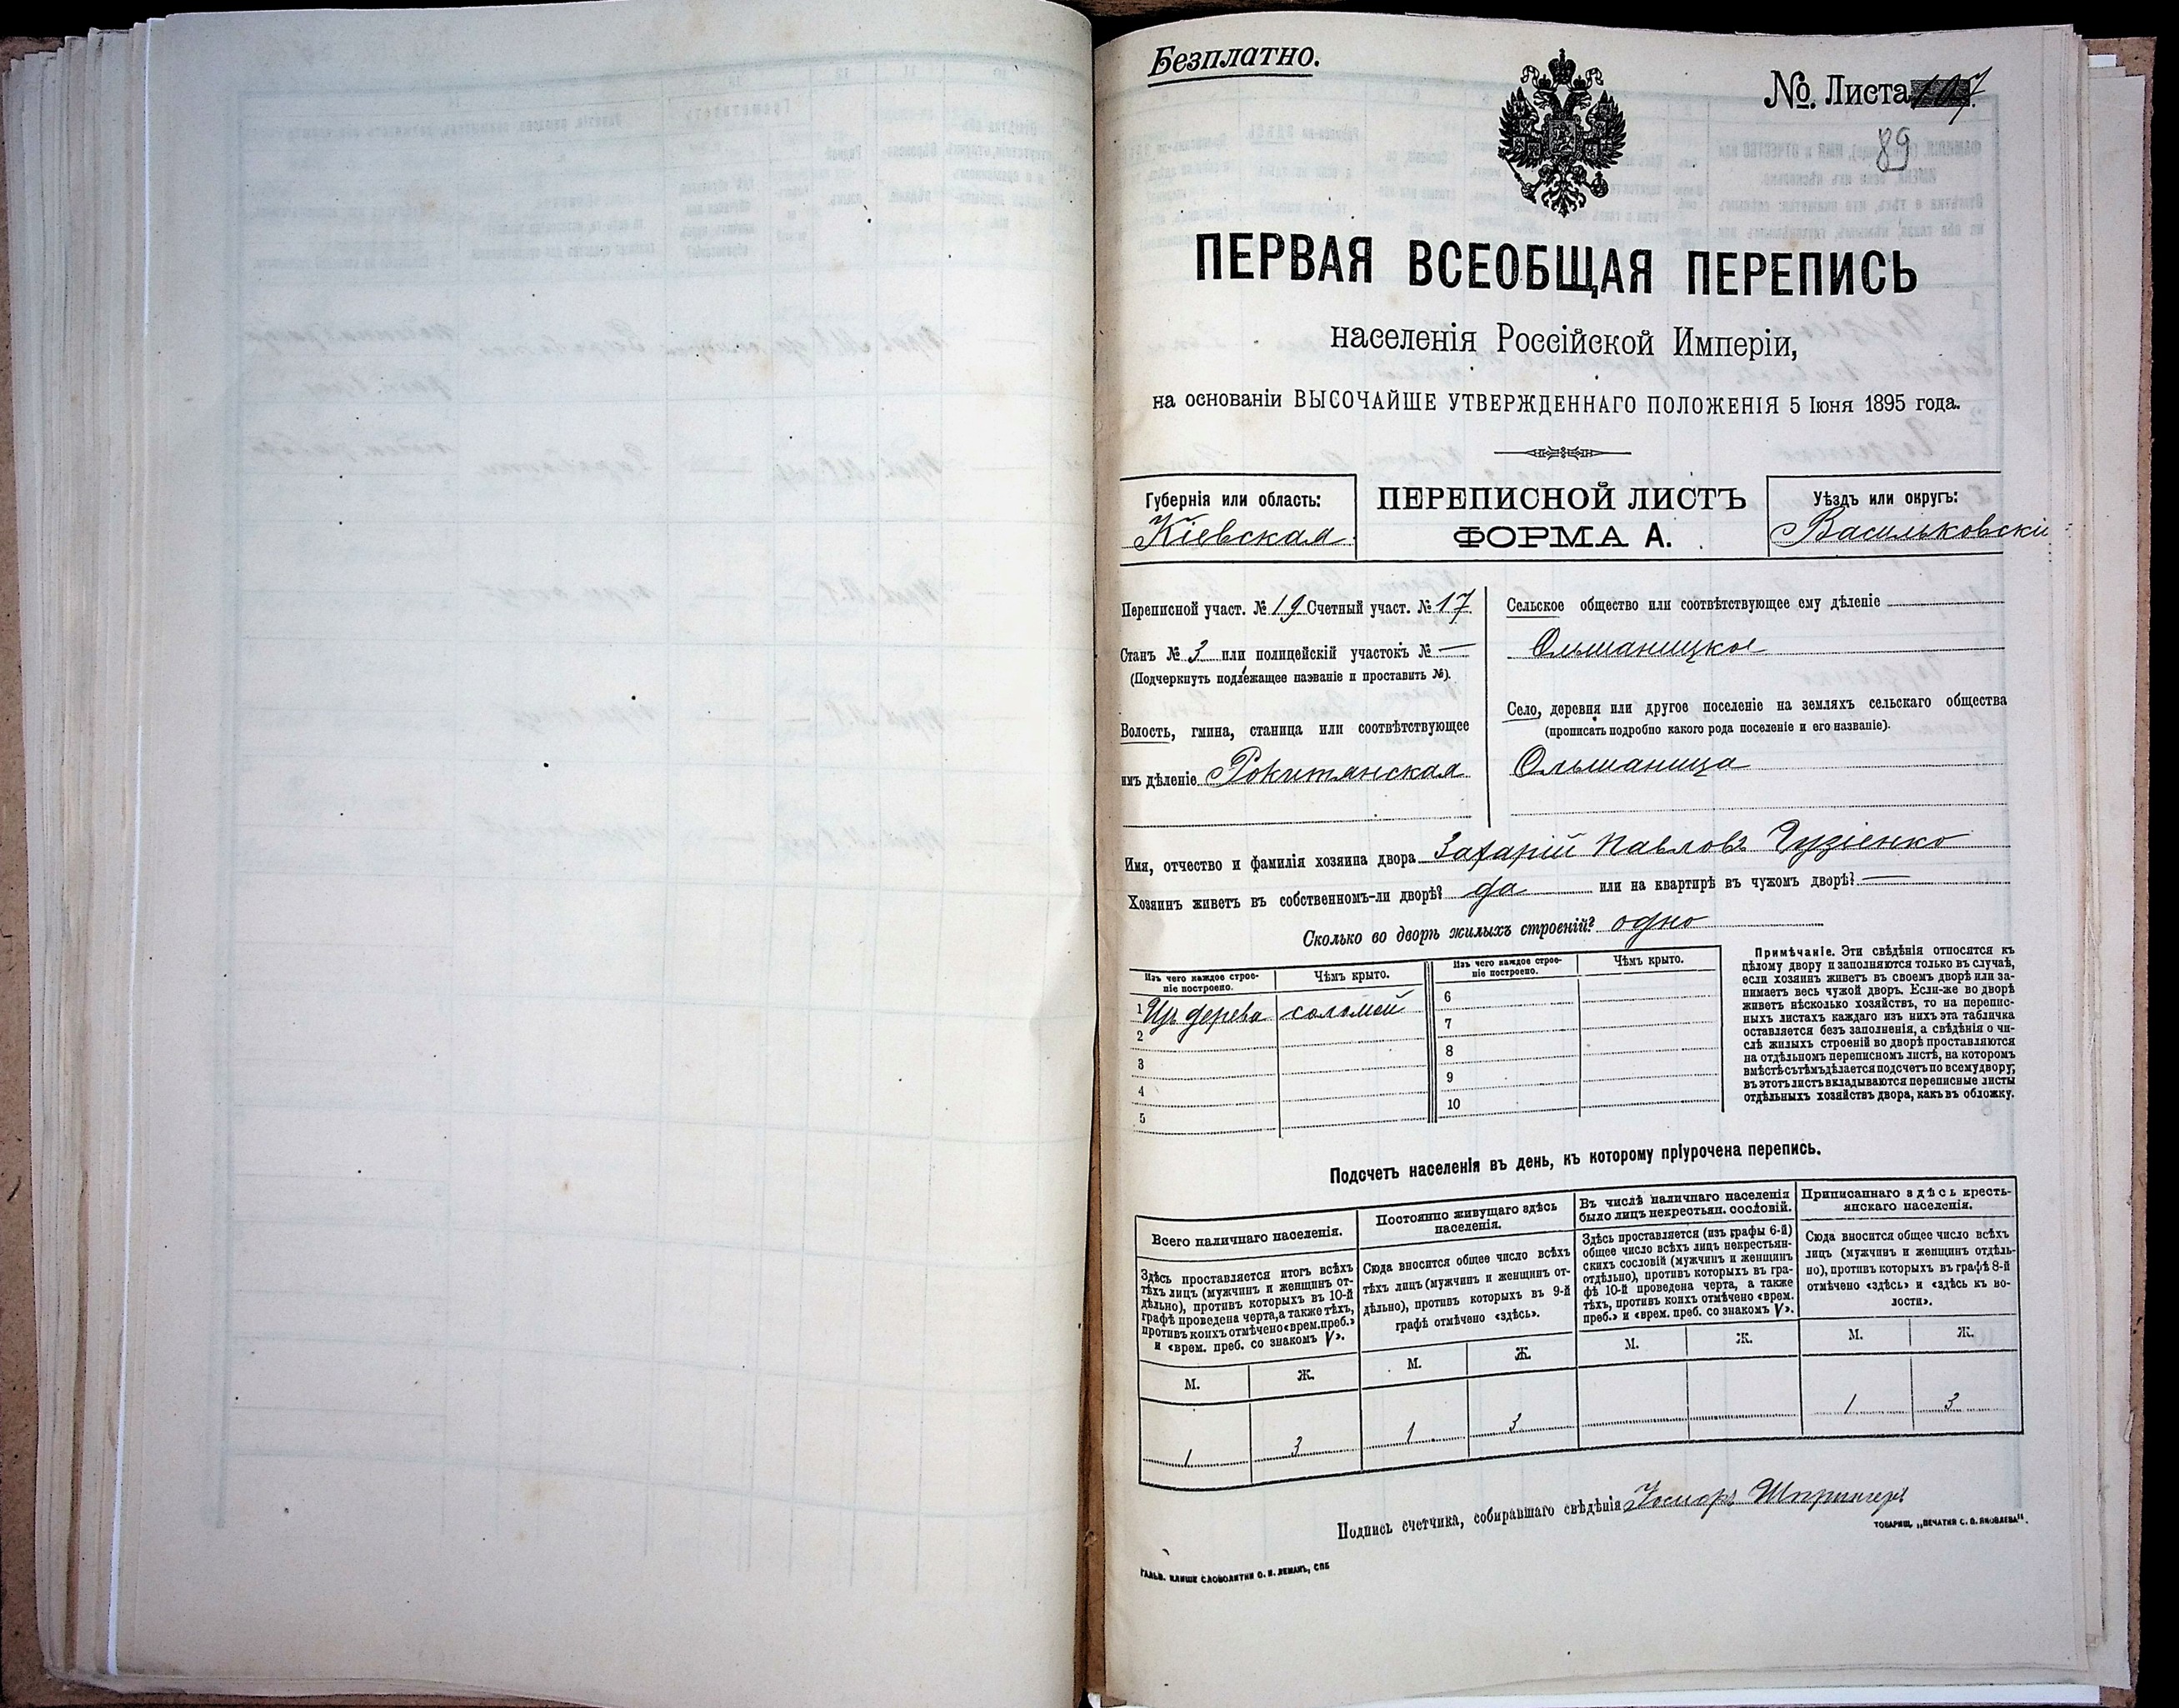 Безплатно.
№ Листа 107
89
ПЕРВАЯ ВСЕОБЩАЯ ПЕРЕПИСЬ
населенія Россійской Имперіи,
на основаніи ВЫСОЧАЙШЕ УТВЕРЖДЕННАГО ПОЛОЖЕНІЯ 5 Іюня 1895 года.
Губернія или область:
Кіевская
ПЕРЕПИСНОЙ ЛИСТЪ
ФОРМА А.
Уѣздъ или округъ:
Васильковскі
Переписной участ. № 19 Счетный участ. № 17
Станъ № 3 или полицейскій участокъ № —
(Подчеркнуть подлежащее названіе и проставить №).
Волость, гмина, станица или соотвѣтствующее
имъ дѣленіе Рокитянская
Сельское общество или соотвѣтствующее ему дѣленіе
Ольшаницкое
Село, деревня или другое поселеніе на земляхъ сельскаго общества
(прописать подробно какого рода поселеніе и его названіе).
Ольшаница
Имя, отчество и фамилія хозяина двора Захарій Павловъ Гузіенко
Хозяинъ живетъ въ собственномъ-ли дворѣ? да или на квартирѣ въ чужомъ дворѣ? —
Сколько во дворѣ жилыхъ строеній? одно
Изъ чего каждое строе-
ніе построено.
Чѣмъ крыто.
1 Изъ дерева соломой
2
3
4
5
Изъ чего каждое строе-
ніе построено.
Чѣмъ крыто.
6
7
8
9
10
Примѣчаніе. Эти свѣдѣнія относятся къ
цѣлому двору и заполняются только въ случаѣ,
если хозяинъ живетъ въ своемъ дворѣ или за-
нимаетъ весь чужой дворъ. Если-же во дворѣ
живетъ нѣсколько хозяйствъ, то на перепис-
ныхъ листахъ каждаго изъ нихъ эта табличка
оставляется безъ заполненія, а свѣдѣнія о чи-
слѣ жилыхъ строеній во дворѣ проставляются
на отдѣльномъ переписномъ листѣ, на которомъ
вмѣстѣ съ тѣмъ дѣлается подсчетъ по всему двору;
въ этотъ листъ вкладываются переписные листы
отдѣльныхъ хозяйствъ двора, какъ въ обложку.
Подсчетъ населенія въ день, къ которому пріурочена перепись.
Всего наличнаго населенія.
Здѣсь проставляется итогъ всѣхъ
тѣхъ лицъ (мужчинъ и женщинъ от-
дѣльно), противъ которыхъ въ 10-й
графѣ проведена черта, а также тѣхъ,
противъ коихъ отмѣчено «врем. преб.»
и «врем. преб. со знакомъ V».
М. Ж.
1 3
Постоянно живущаго здѣсь
населенія.
Сюда вносится общее число всѣхъ
тѣхъ лицъ (мужчинъ и женщинъ от-
дѣльно), противъ которыхъ въ 9-й
графѣ отмѣчено «здѣсь».
М. Ж.
1 3
Въ числѣ наличнаго населенія
было лицъ некрестьян. сословій.
Здѣсь проставляется (изъ графы 6-й)
общее число всѣхъ лицъ некрестьян-
скихъ сословій (мужчинъ и женщинъ
отдѣльно), противъ которыхъ въ гра-
фѣ 10-й проведена черта, а также
тѣхъ, противъ коихъ отмѣчено «врем.
преб.» и «врем. преб. со знакомъ V».
М. Ж.
Приписаннаго здѣсь кресть-
янскаго населенія.
Сюда вносится общее число всѣхъ
лицъ (мужчинъ и женщинъ отдѣль-
но), противъ которыхъ въ графѣ 8-й
отмѣчено «здѣсь» и «здѣсь къ во-
лости».
М. Ж.
1 3
Подпись счетчика, собиравшаго свѣдѣнія
ТОВАРИЩ. „ПЕЧАТНЯ С. П. ЯКОВЛЕВА".
ГАЛЬВ. КЛИШЕ СЛОВОЛИТНИ О. И. ЛЕМАНЪ, СПБ